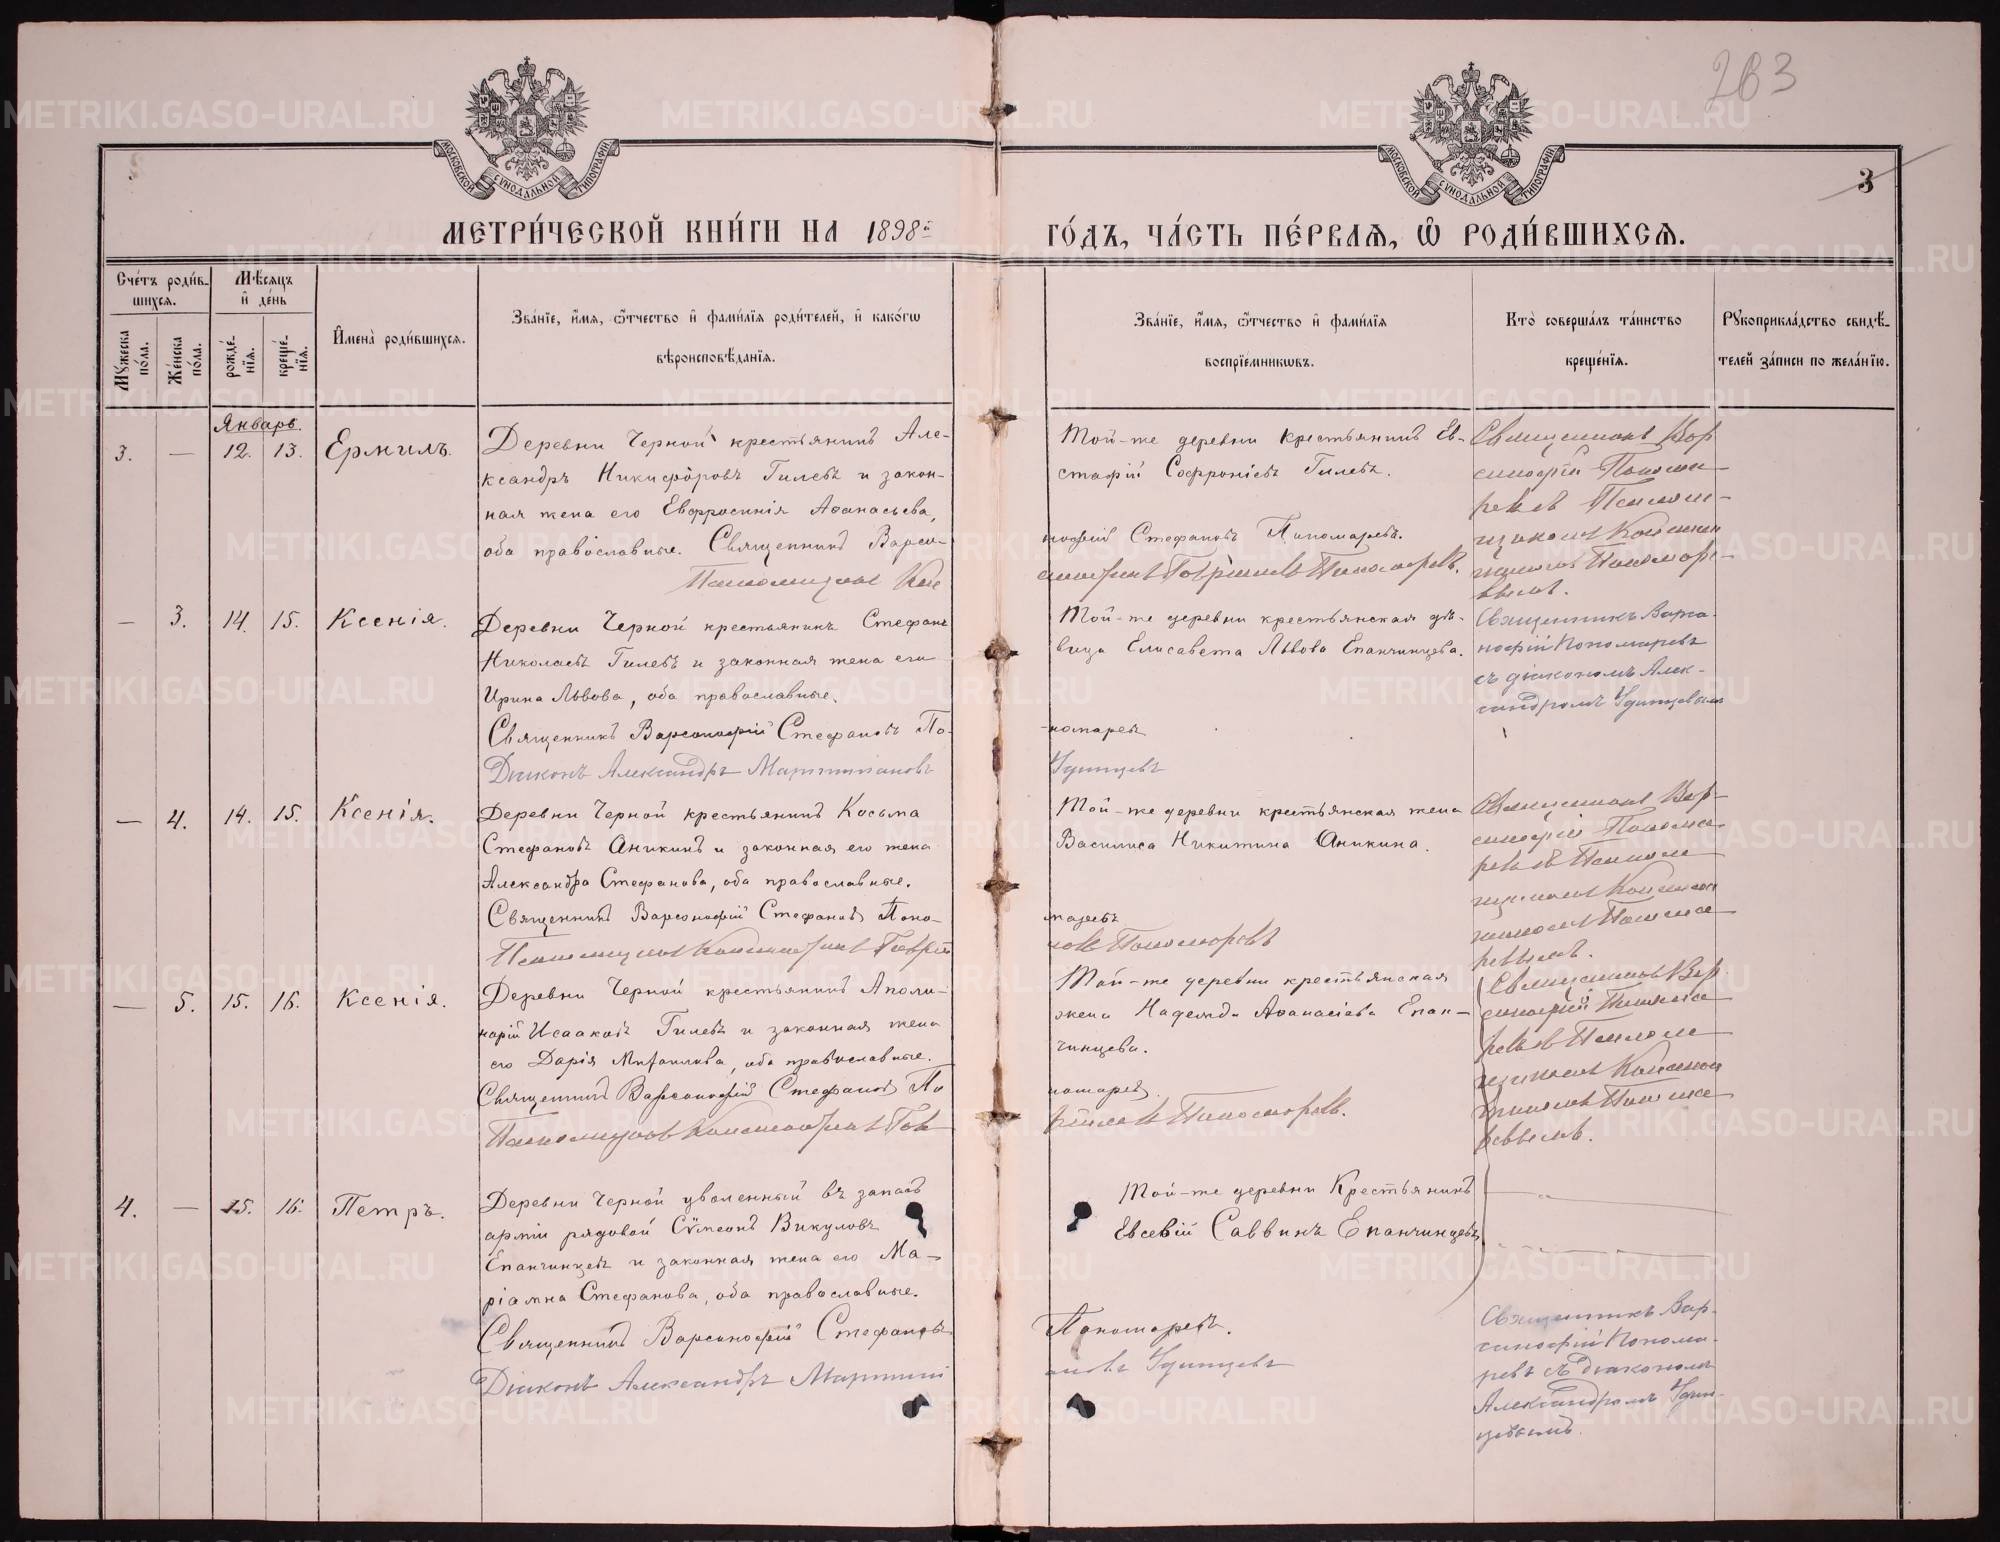 263
3
МОСКОВСКОЙ СѴНОДАЛЬНОЙ ТИПОГРАФІИ
МОСКОВСКОЙ СѴНОДАЛЬНОЙ ТИПОГРАФІИ
МЕТРИ́ЧЕСКОЙ КНИ́ГИ НА 1898й
ГО́ДЪ, ЧА́СТЬ ПЕ́РВАЯ, Ѡ РОДИ́ВШИХСЯ.
Сче́тъ роди́в-
шихся.
Му́жеска
по́ла.
Же́нска
по́ла.
Мѣ́сяцъ
и҆ де́нь
рожде́-
нїя.
креще́-
нїя.
И҆мена̀ роди́вшихся.
Зва́нїе, и҆́мя, ѻ҆́тчество и҆ фами́лїя роди́телей, и҆ како́гѡ
вѣроисповѣ́данїя.
Зва́нїе, и҆́мя, ѻ҆́тчество и҆ фами́лїя
воспрїе́мникѡвъ.
Кто̀ соверша́лъ та́инство
креще́нїя.
Рꙋкоприкла́дство свидѣ́-
телей за́писи по жела́нїю.
Январь.
3. — 12. 13. Ермилъ.
Деревни Черной крестьянинъ Але-
ксандръ Никифоровъ Гилевъ и закон-
ная жена его Евфросинія Аѳанасьева,
оба православные. Священникъ Варсо-
Псаломщикъ Кон
Той-же деревни крестьянинъ Ев-
стафій Софроніевъ Гилевъ.
нофій Стефановъ Пономаревъ.
стантинъ Гавріиловъ Пономаревъ.
Священникъ Вар
сонофій Понома-
ревъ съ Псалом-
щикомъ Констан
тиномъ Пономаре-
вымъ.
— 3. 14. 15. Ксенія.
Деревни Черной крестьянинъ Стефанъ
Николаевъ Гилевъ и законная жена его
Ирина Львова, оба православные.
Священникъ Варсонофій Стефановъ По-
Діаконъ Александръ Мартиніановъ
Той-же деревни крестьянская дѣ-
вица Елисавета Львова Епанчинцева.
номаревъ
Удинцевъ
Священникъ Варсо-
нофій Пономаревъ
съ діакономъ Алек-
сандромъ Удинцевымъ
— 4. 14. 15. Ксенія.
Деревни Черной крестьянинъ Косьма
Стефановъ Аникинъ и законная его жена
Александра Стефанова, оба православные.
Священникъ Варсонофій Стефановъ Поно-
Псаломщикъ Константинъ Гаврі
Той-же деревни крестьянская жена
Василиса Никитина Аникина.
маревъ
ловъ Пономаревъ
Священникъ Вар-
сонофій Понома-
ревъ съ Псалом
щикомъ Констан
тиномъ Понома-
ревымъ.
— 5. 15. 16. Ксенія.
Деревни Черной крестьянинъ Аполи-
нарій Исааковъ Гилевъ и законная жена
его Дарія Михаилова, оба православные.
Священникъ Варсонофій Стефановъ По
Псаломщикъ Константинъ Гав
Той-же деревни крестьянская
жена Надежда Аѳанасіева Епан-
чинцева.
номаревъ.
ріиловъ Пономаревъ.
Священникъ Вар
сонофій Понома
ревъ съ Псалом
щикомъ Констан
тиномъ Понома
ревымъ.
4. — 15. 16. Петръ.
Деревни Черной уволенный въ запасъ
арміи рядовой Сѵмеонъ Викуловъ
Епанчинцевъ и законная жена его Ма-
ріамна Стефанова, оба православные.
Священникъ Варсонофій Стефановъ
Діаконъ Александръ Мартині
Той-же деревни Крестьянинъ
Евсевій Саввинъ Епанчинцевъ
Пономаревъ.
ановъ Удинцевъ
Священникъ Вар-
сонофій Понома-
ревъ съ діакономъ
Александромъ Удин-
цевымъ.
METRIKI.GASO-URAL.RU